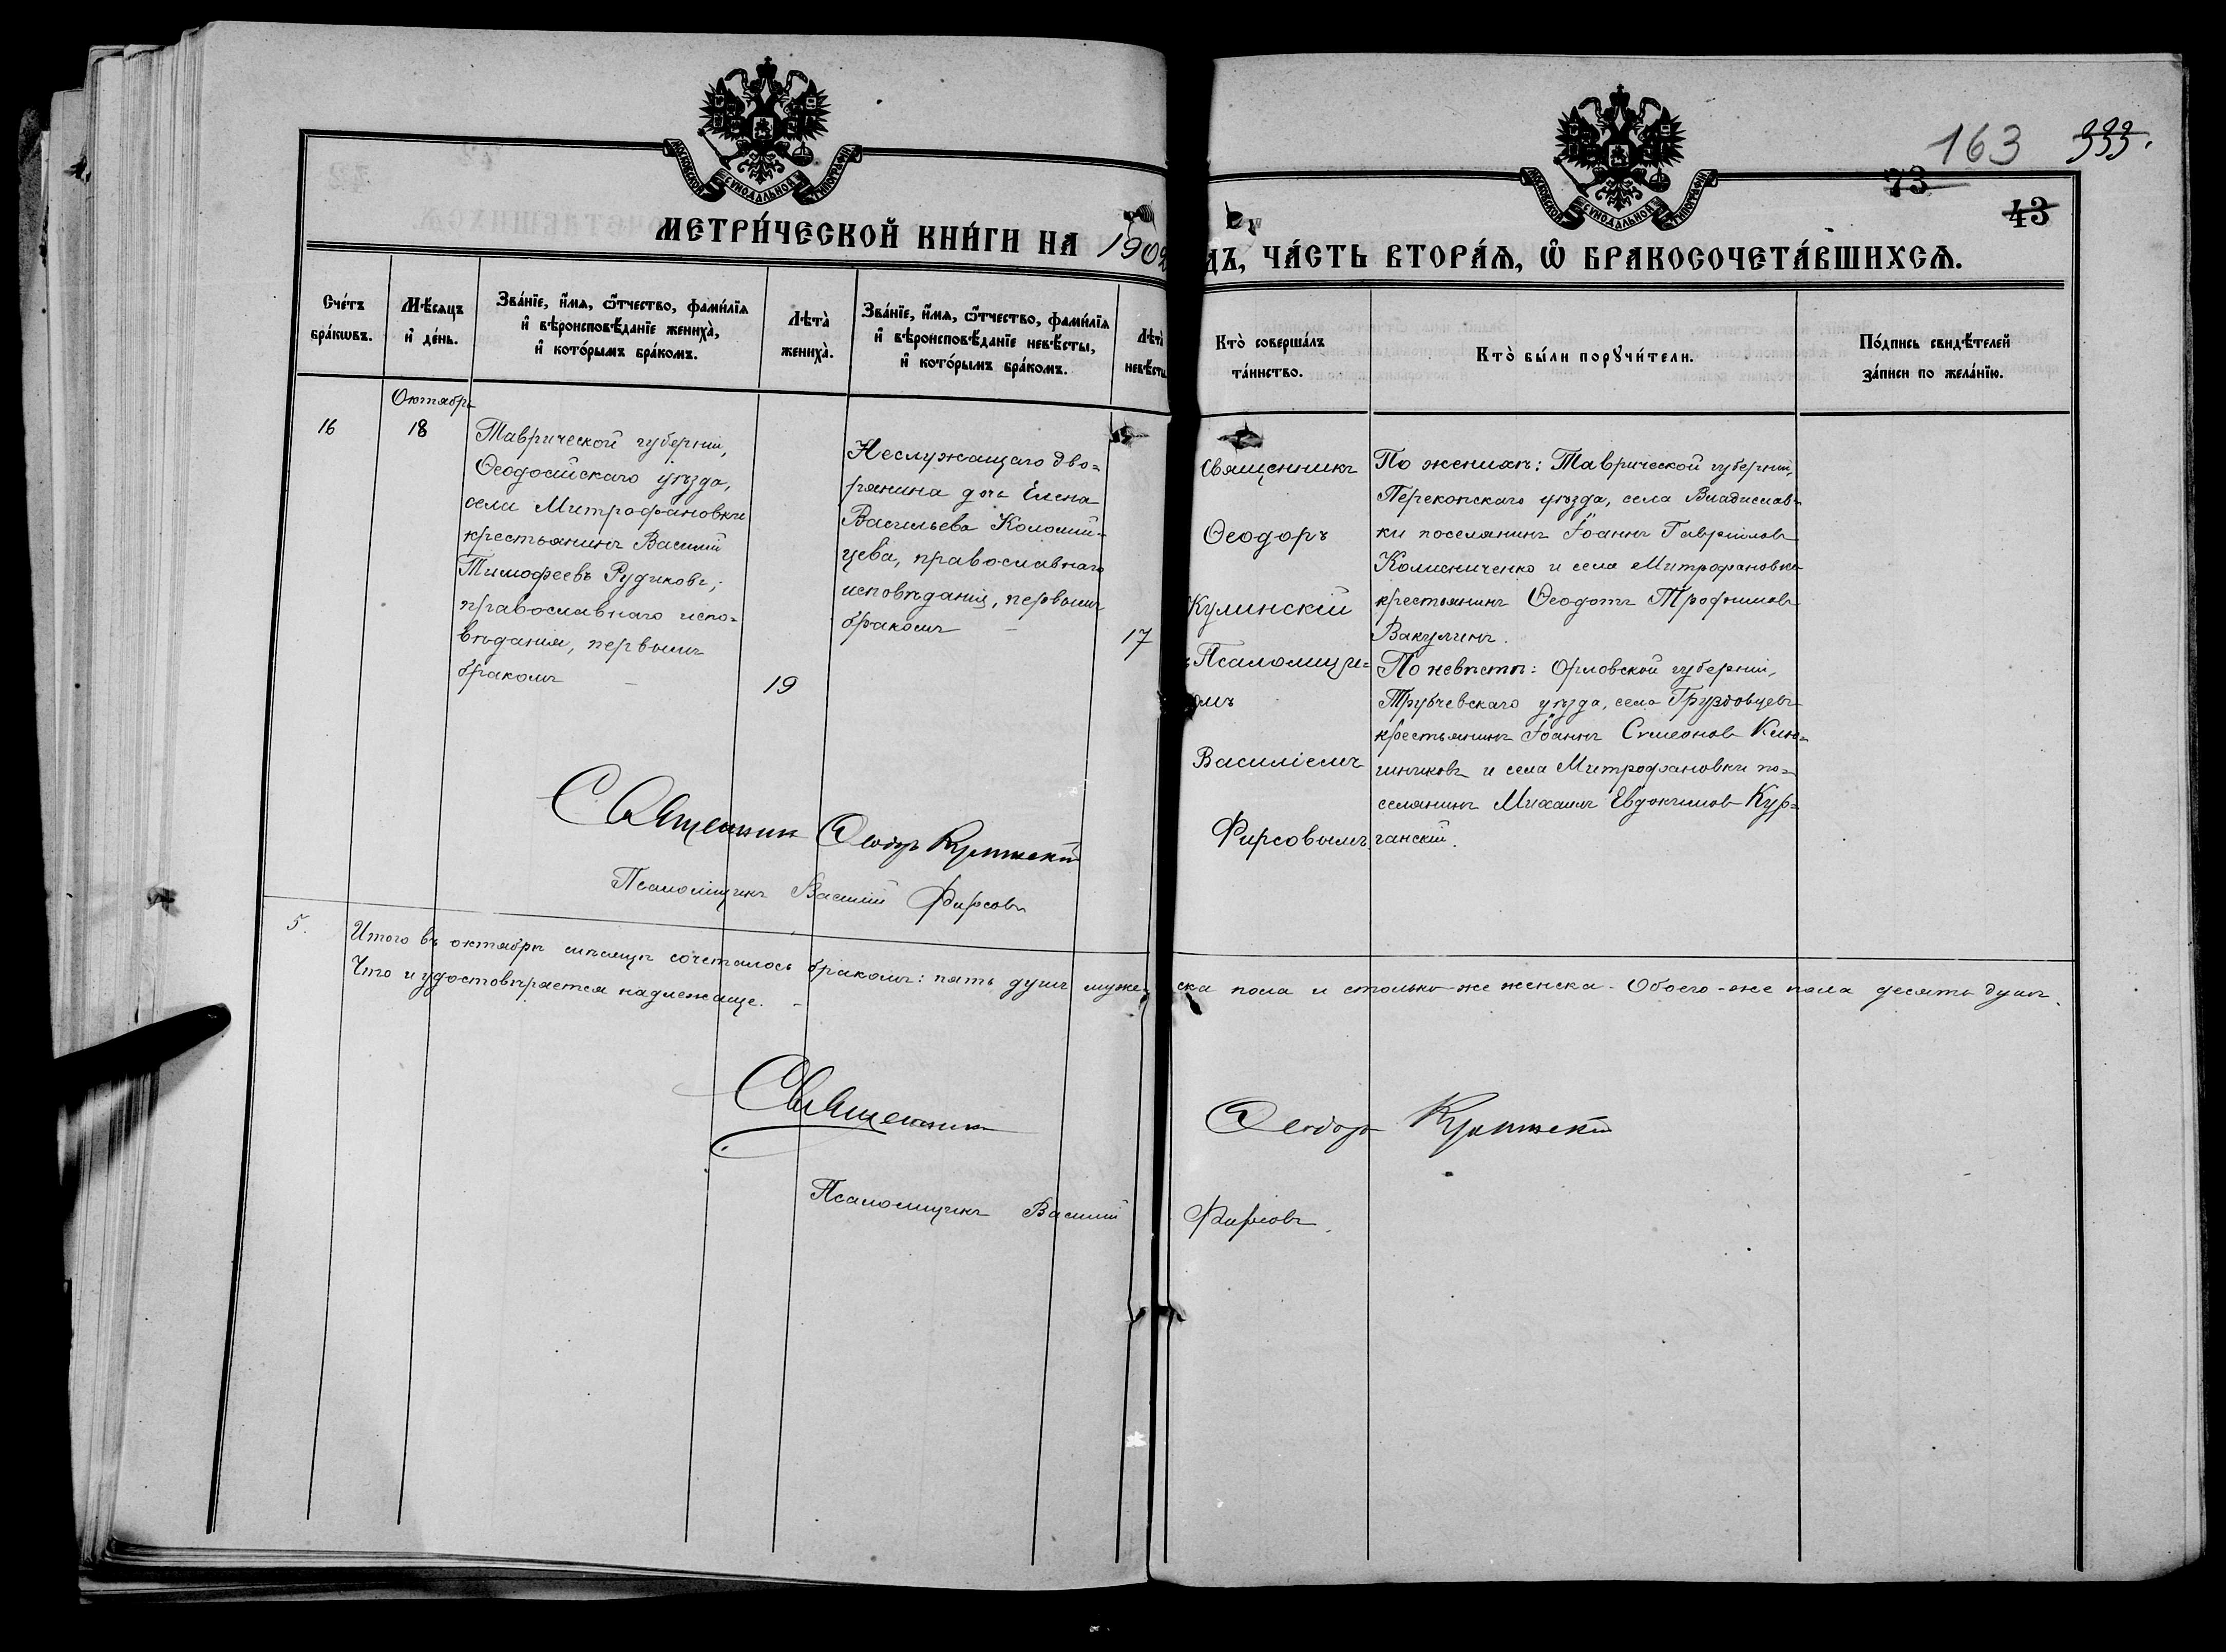 163 333.
73
43
МОСКОВСКОЙ СѴНОДАЛЬНОЙ ТИПОГРАФІИ
МОСКОВСКОЙ СѴНОДАЛЬНОЙ ТИПОГРАФІИ
МЕТРИ́ЧЕСКОЙ КНИ́ГИ НА 1902
ДЪ, ЧА́СТЬ ВТОРА́Ѧ, Ѽ БРАКОСОЧЕТА́ВШИХСѦ.
Сче́тъ
бра́кѡвъ.
Мѣ́сяцъ
и҆ де́нь.
Зва́нїе, и҆́мѧ, ѻ҆́тчество, фами́лїѧ
и҆ вѣроисповѣ́данїе жениха̀,
и҆ кото́рымъ бра́комъ.
Лѣта̀
жениха̀.
Зва́нїе, и҆́мѧ, ѻ҆́тчество, фами́лїѧ
и҆ вѣроисповѣ́данїе невѣ́сты,
и҆ кото́рымъ бра́комъ.
Лѣта̀
невѣ́сты
Кто̀ соверша́лъ
та́инство.
Кто̀ бы́ли порꙋчи́тели.
По́дпись свидѣ́телей
за́писи по жела́нїю.
Октябрь
16
18
Таврической губерніи,
Ѳеодосійскаго уѣзда,
села Митрофановки
крестьянинъ Василій
Тимофеевъ Рудиковъ,
православнаго испо=
вѣданія, первымъ
бракомъ –
19
Неслужащаго дво=
рянина дочь Елена
Васильева Коломій=
цева, православнаго
исповѣданія, первымъ
бракомъ –
17
Священникъ
Ѳеодоръ
Кулинскій
Псаломщи=
омъ
Василіемъ
Фирсовымъ.
По женихѣ: Таврической губерніи,
Перекопскаго уѣзда, села Владислав-
ки поселянинъ Іоаннъ Гавріиловъ
Колисниченко и села Митрофановки
крестьянинъ Ѳеодотъ Трофимовъ
Вакулинъ.
По невѣстѣ: Орловской губерніи,
Трубчевскаго уѣзда, села Груздовцевъ
крестьянинъ Іоаннъ Симеоновъ Клю=
шниковъ и села Митрофановки по=
селянинъ Михаилъ Евдокимовъ Кур=
ганскій.
Священникъ Ѳеодоръ Кулинскій
Псаломщикъ Василій Фирсовъ
5. Итого въ октябрѣ мѣсяцѣ сочеталось бракомъ: пять душъ муже-ска пола и столько-же женска. Обоего-же пола десять душъ.
Что и удостовѣряется надлежаще. –
Священникъ Ѳеодоръ Кулинскій
Псаломщикъ Василій Фирсовъ.